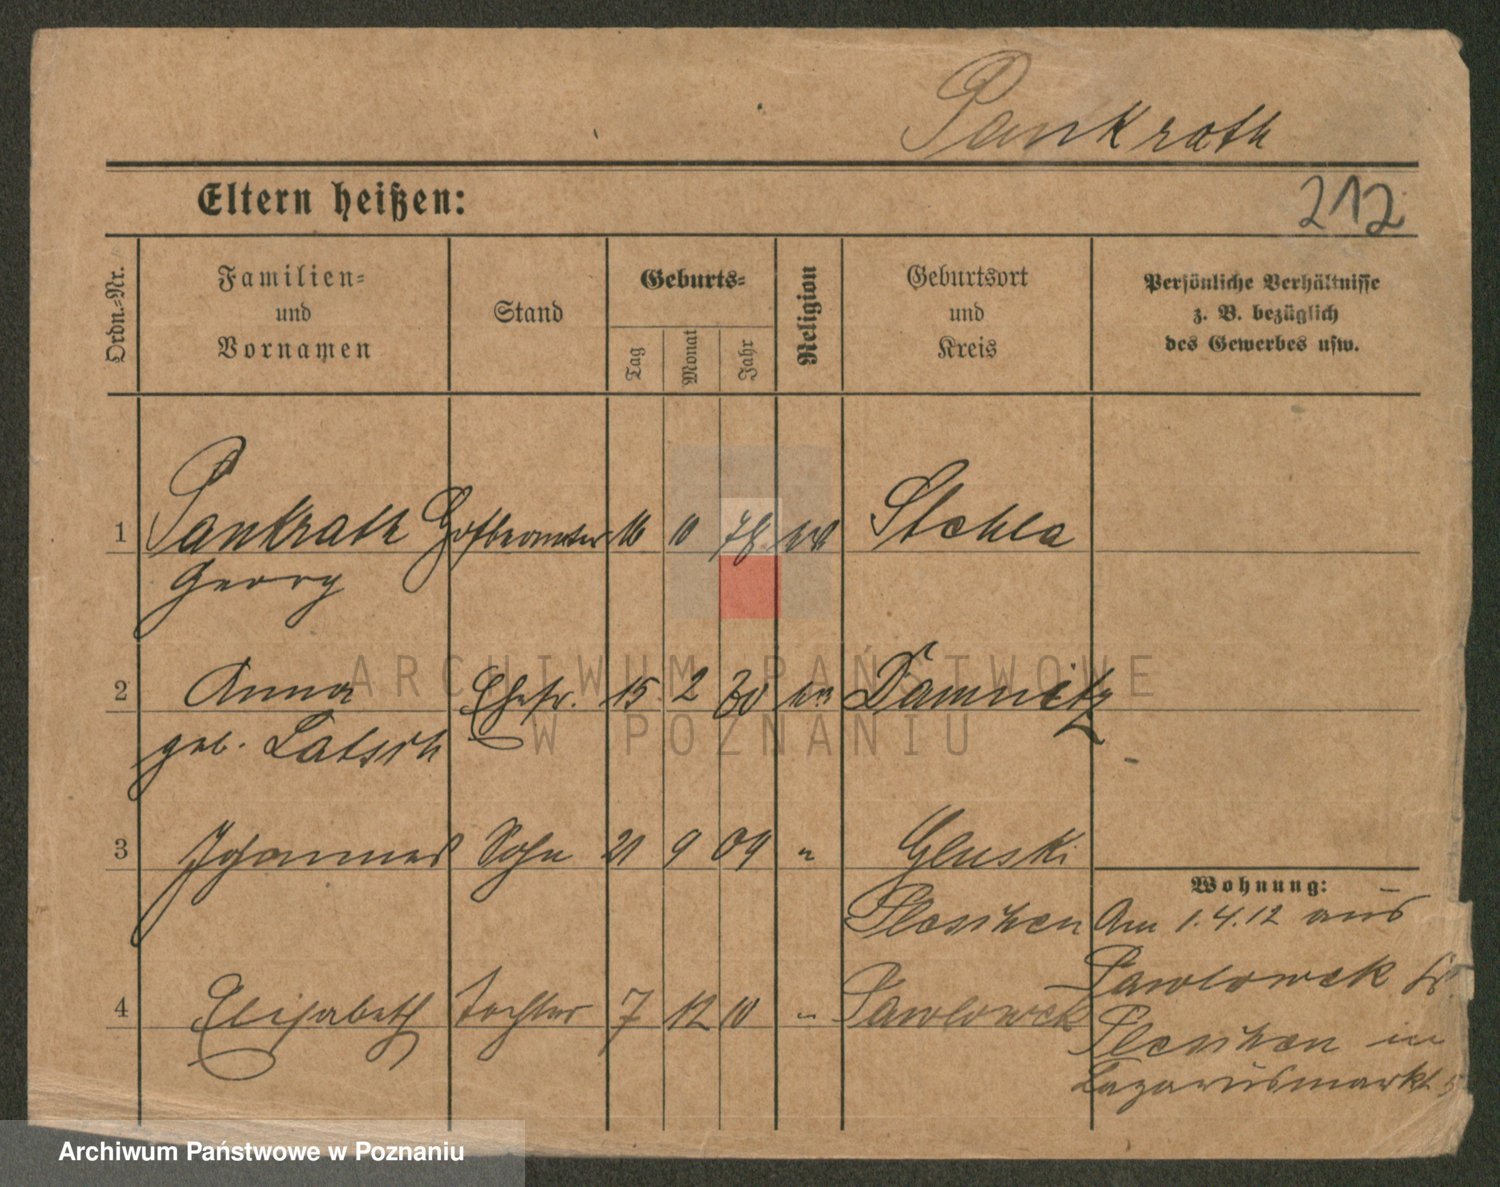 Pankrath
Eltern heißen:
212
Ordn.-Nr.
Familien- und Vornamen
Stand
Geburts-
Tag
Monat
Jahr
Religion
Geburtsort und Kreis
Persönliche Verhältnisse z. B. bezüglich des Gewerbes usw.
1 Pankrath 10 Stehla
Georg
2 Anna Ehefr. 15 2 Damnitz
geb. Latsch
3 Johannes Sohn 21 9 09 " Gluski
Pleschen
4 Elisabeth Tochter 7 12 10 " Pawlowek
Wohnung:
Am 1.4.12 aus
Pawlowek
Pleschen in
Lazarusmarkt
ARCHIWUM PAŃSTWOWE
W POZNANIU
Archiwum Państwowe w Poznaniu